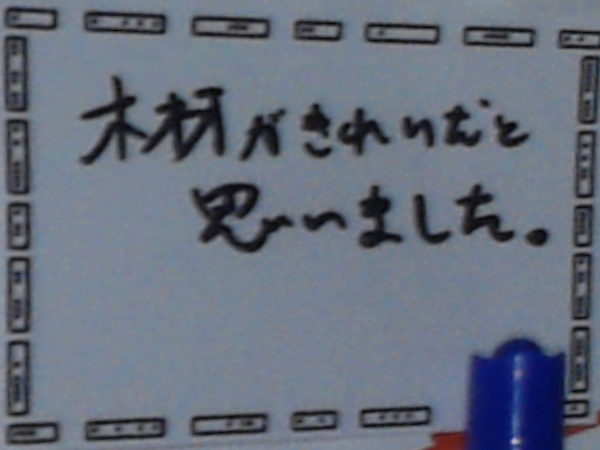 木材がきれいだと
思いました。